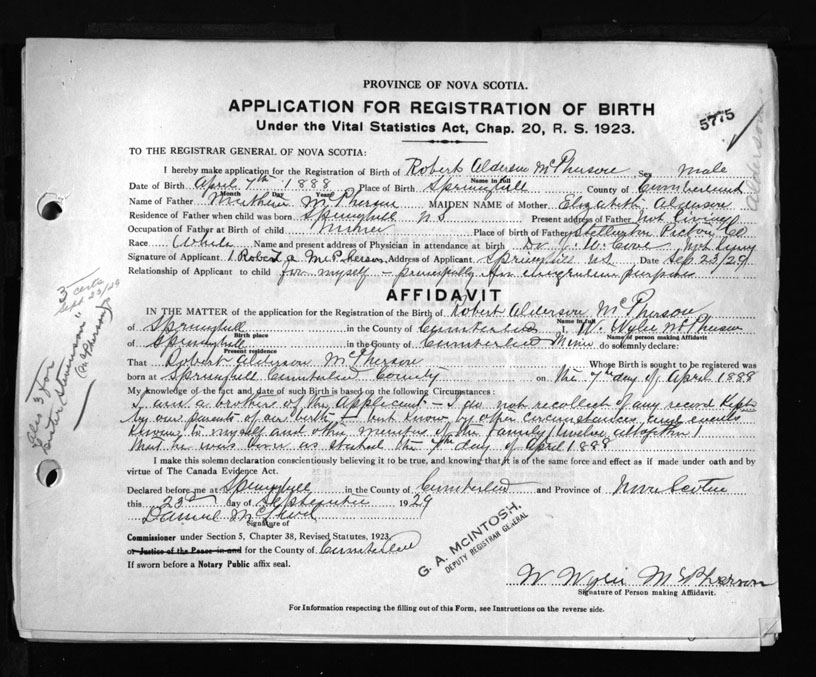 PROVINCE OF NOVA SCOTIA.
APPLICATION FOR REGISTRATION OF BIRTH
5775
Under the Vital Statistics Act, Chap. 20, R. S. 1923.
TO THE REGISTRAR GENERAL OF NOVA SCOTIA:
I hereby make application for the Registration of Birth of Robert Alderson McPherson Sex male
Name in full
Date of Birth April 7th 1888 Place of Birth Springhill County of Cumberland
Month Day Year
Name of Father McPherson MAIDEN NAME of Mother Elizabeth Alderson
Residence of Father when child was born Springhill N.S. Present address of Father Not living
Occupation of Father at Birth of child Miner Place of birth of Father Stellarton Pictou Co
Race White Name and present address of Physician in attendance at birth Dr J. W. Cove Not living
Signature of Applicant Robert A McPherson Address of Applicant Springhill N.S. Date Sep. 23/29
Relationship of Applicant to child for myself - principally for purposes
AFFIDAVIT
IN THE MATTER of the application for the Registration of the Birth of Robert Alderson McPherson
Name in full
of Springhill in the County of Cumberland I, W. Wylie McPherson
Birth place
Name of person making Affidavit
of Springhill in the County of Cumberland Miner do solemnly declare:
Present residence
That Robert Alderson McPherson Whose Birth is sought to be registered was
born at Springhill Cumberland County on the 7th day of April 1888
My knowledge of the fact and date of such Birth is based on the following Circumstances:
I am a brother of the Applicant - I do not recollect of any record kept
by our parents of our birth - but know by other circumstances and events
known to myself and other members of the family
that he was born as stated the 7th day of April 1888
I make this solemn declaration conscientiously believing it to be true, and knowing that it is of the same force and effect as if made under oath and by
virtue of The Canada Evidence Act.
Declared before me at Springhill in the County of Cumberland and Province of Nova Scotia
this 23rd day of September 1929
Daniel
Signature of
Commissioner under Section 5, Chapter 38, Revised Statutes, 1923.
or Justice of the Peace in and for the County of Cumberland
If sworn before a Notary Public affix seal.
G. A. McINTOSH,
DEPUTY REGISTRAR GENERAL
W Wylie McPherson
Signature of Person making Affidavit.
For Information respecting the filling out of this Form, see Instructions on the reverse side.
3 certs
Sept 23/29
Alderson